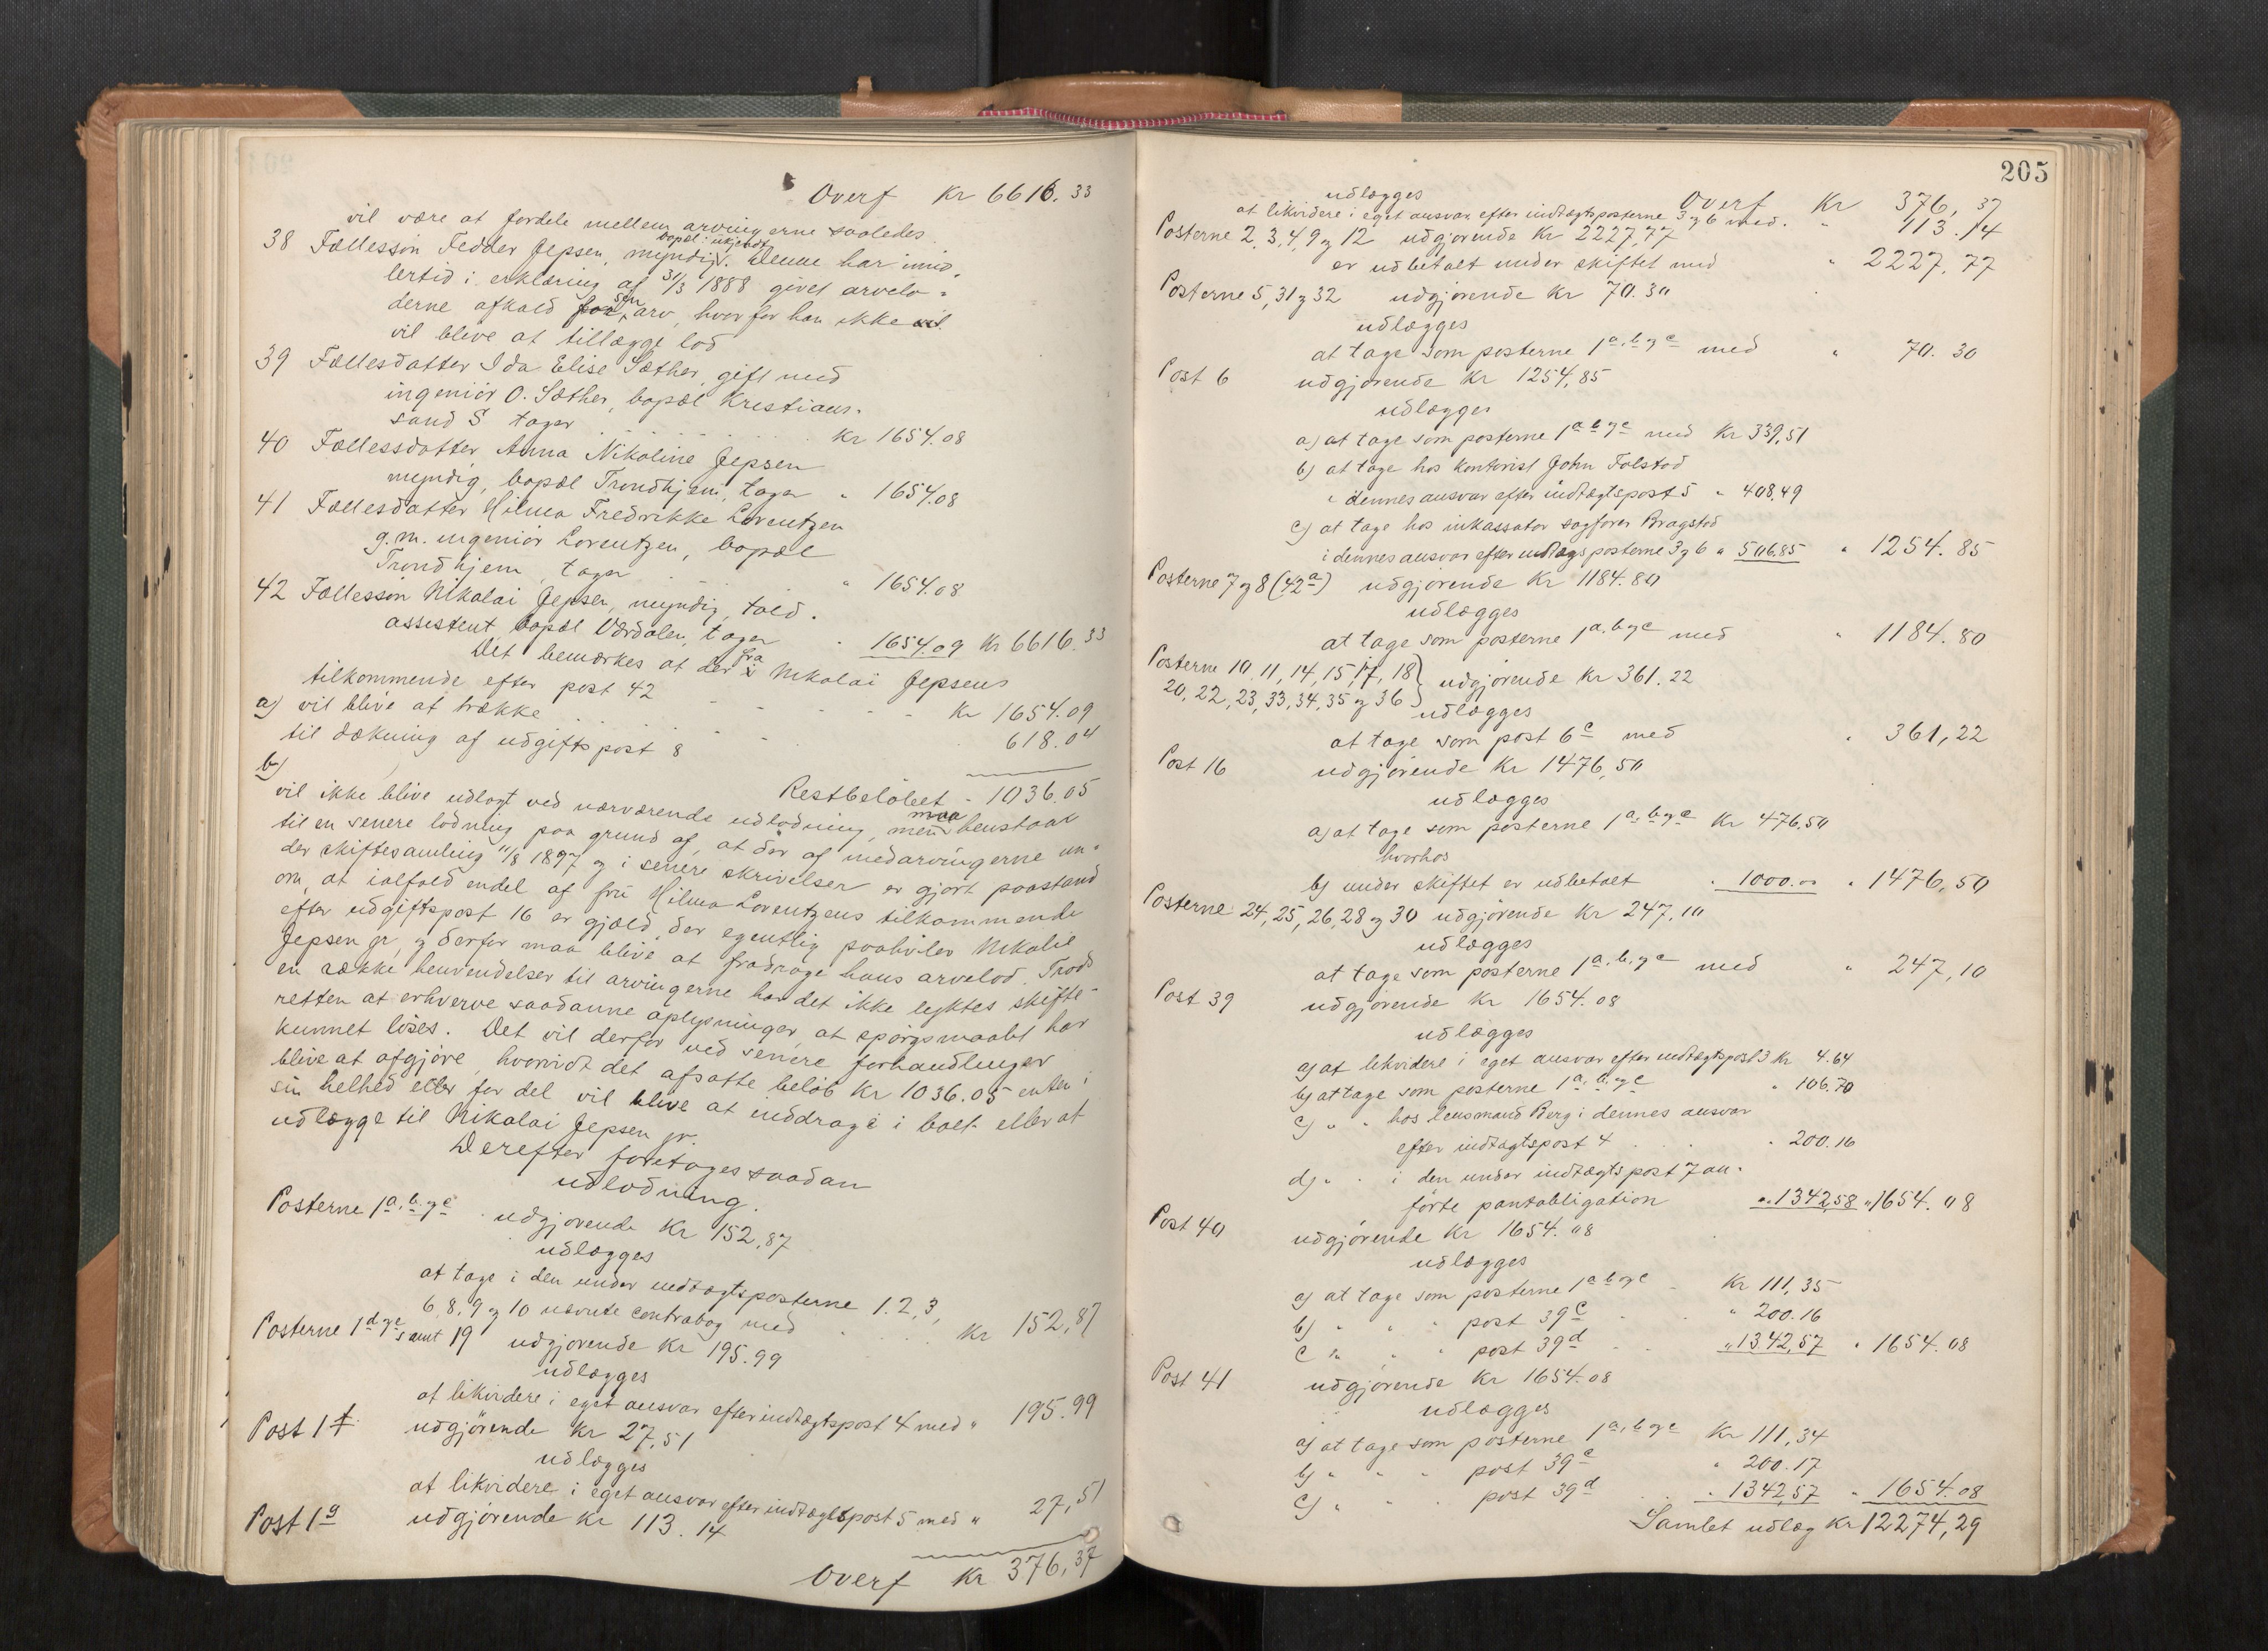 Overf Kr 6616.33
vil være at fordele mellem arvingerne saaledes
38 Fællessøn Fedder Jepsen, myndig, bopæl: ukjendt. Denne har imid-
lertid i erklæring af 31/3 1888 givet arvela-
derne afkald for sin arv, hvorfor han ikke vil
vil blive at tillægge lod
39 Fællesdatter Ida Elise Sæther, gift med
ingeniør O. Sæther, bopæl Kristians-
sand S tager Kr 1654.08
40 Fællessdatter Anna Nikoline Jepsen
myndig, bopæl Trondhjem, tager " 1654.08
41 Fællesdatter Hilma Fredrikke Lorentzen
g.m. ingeniør Lorentzen, bopæl
Trondhjem, tager " 1654.08
42 Fællessøn Nikolai Jepsen, myndig, told-
assistent, bopæl Værdalen, tager " 1654.09 Kr 6616.33
Det bemærkes at der fra Nikolai Jepsens
tilkommende efter post 42 Kr 1654.09
a) vil blive at trække
til dækning af udgiftspost 8 618.04
b) Restbeløbet - 1036.05
vil ikke blive udlagt ved nærværende udlodning, men maa henstaa
til en senere lodning paa grund af, at der af medarvingerne un-
der skiftesamling 11/8 1897 og i senere skrivelser er gjort paastand
om, at ialfald endel af fru Hilma Lorentzens tilkommende
efter udgiftspost 16 er gjæld, der egentlig paahviler Nikolai
Jepsen jr, og derfor maa blive at fradrage hans arvelod. Trods
en række henvendelser til arvingerne har det ikke lyktes skifte-
retten at erhverve saadanne oplysninger, at spørgsmaalet har
kunnet løses. Det vil derfor ved senere forhandlinger
blive at afgjøre, hvorvidt det afsatte beløb Kr 1036.05 enten i
sin helhed eller for del vil blive at inddrage i boet eller at
udlægge til Nikolai Jepsen jr.
Derefter foretages saadan
udlodning.
Posterne 1a, b og c udgjørende Kr 152,87
udlægges
at tage i den under indtægtsposterne 1.2,3,
6,8,9 og 10 nævnte contrabog med Kr 152,87
Posterne 1d og e samt 19 udgjørende Kr 195.99
udlægges
at likvidere i eget ansvar efter indtægtspost 4 med " 195.99
Post 1f udgjørende Kr 27,51
udlægges
at likvidere i eget ansvar efter indtægtspost 5 med " 27,51
Post 1g udgjørende Kr 113.14
Overf Kr 376,37
205
udlægges Overf Kr 376,37
at likvidere i eget ansvar efter indtægtsposterne 3 og 6 med " 113.14
Posterne 2,3,4,9 og 12 udgjørende Kr 2227,77
er udbetalt under skiftet med " 2227,77
Posterne 5,31 og 32 udgjørende Kr 70.30
udlægges
at tage som posterne 1a, b og c med " 70.30
Post 6 udgjørende Kr 1254,85
udlægges
a) at tage som posterne 1a b og c med Kr 339,51
b) at tage hos kontorist John Tolstad
i dennes ansvar efter indtægtspost 5 " 408,49
c) at tage hos inkassator sagfører Bragstad
i dennes ansvar efter indtægtsposterne 3 og 6 " 506.85 " 1254.85
Posterne 7 og 8 (42a) udgjørende Kr 1184.80
udlægges
at tage som posterne 1a, b og c med " 1184.80
Posterne 10.11,14,15,17,18
20,22,23,33,34,35 og 36 } udgjørende Kr 361.22
udlægges
at tage som post 6c med " 361,22
Post 16 udgjørende Kr 1476,50
udlægges
a) at tage som posterne 1a, b og c Kr 476,50
hvorhos
b) under skiftet er udbetalt " 1000.00 " 1476,50
Posterne 24,25,26,28 og 30 udgjørende Kr 247,10
udlægges
at tage som posterne 1a, b og c med " 247,10
Post 39 udgjørende Kr 1654.08
udlægges
a) at likvidere i eget ansvar efter indtægtspost 3 Kr 4.64
b) at tage som posterne 1a, b og c " 106.70
c) " " hos lensmand Berg i dennes ansvar
efter indtægtspost 4 " 200.16
d) " " i den under indtægtspost 7 an-
førte pantobligation " 1342,58 " 1654.08
Post 40 udgjørende Kr 1654.08
udlægges
a) at tage som posterne 1a b og c Kr 111,35
b) " " " post 39c " 200.16
c " " " post 39d " 1342,57 " 1654.08
Post 41 udgjørende Kr 1654.08
udlægges
a) at tage som posterne 1a, b og c Kr 111,34
b) " " " post 39c " 200.17
c) " " " post 39d " 1342,57 " 1654.08
Samlet udlæg Kr 12274,29